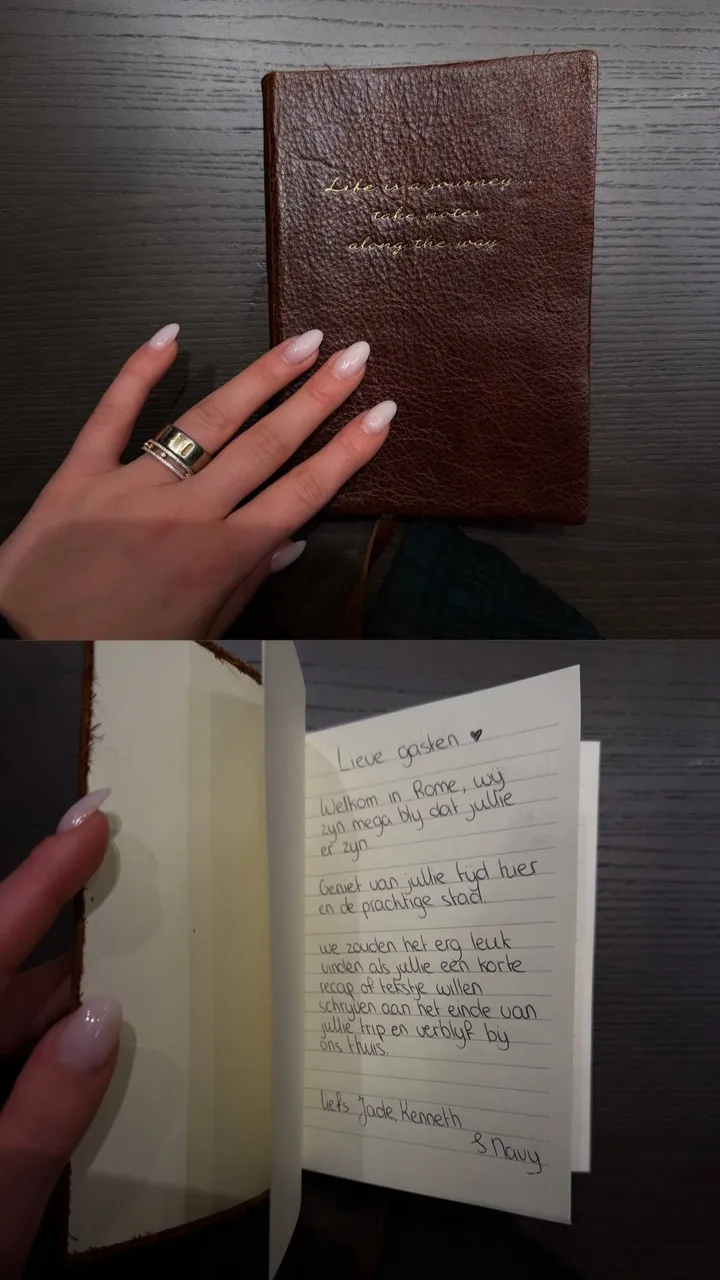 Life is a journey...
take notes
along the way
Lieve gasten ♥
Welkom in Rome, wij
zijn mega blij dat jullie
er zijn.
Geniet van jullie tijd hier
en de prachtige stad.
we zouden het erg leuk
vinden als jullie een korte
recap of tekstje willen
schrijven aan het einde van
jullie trip en verblijf bij
ons thuis.
liefs Jade, Kenneth
& Navy